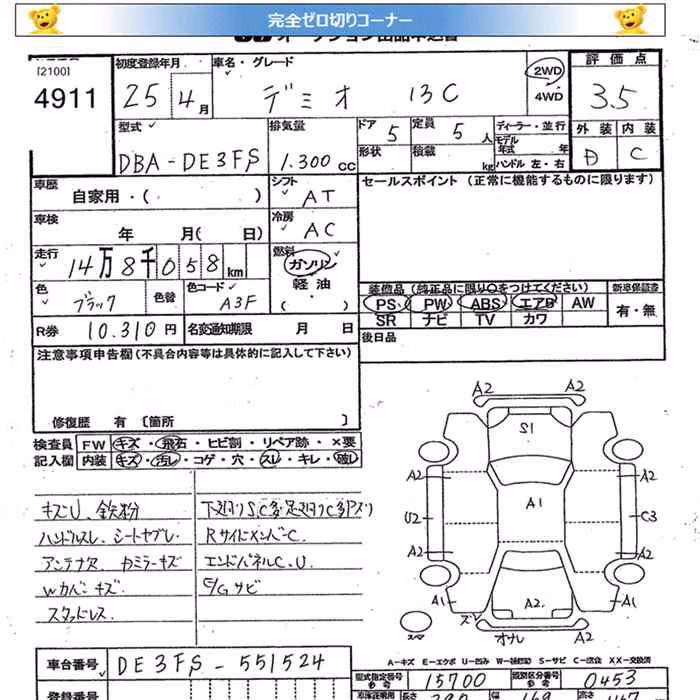 完全ゼロ切りコーナー
[2100]
4911
初度登録年月
25 4月
車名・グレード
デミオ 13C
2WD
4WD
評価点
3.5
外装 内装
D C
型式
DBA-DE3FS
排気量
1.300 CC
ドア 5
定員 5人
形状
積載 kg
ディーラー・並行
モデル年式 年
ハンドル 左・右
車歴
自家用・( )
シフト
AT
セールスポイント (正常に機能するものに限ります)
車検
年 月( 日)
冷房
AC
走行
14万8千058km
燃料
ガソリン
軽油
( ・ )
色
ブラック
色替
色コード
A3F
装備品 (純正品に限り○をつけてください)
新車保証書
PS PW ABS エアB AW
有・無
SR ナビ TV カワ
R券 10.310円
名変通知期限 月 日
後日品
注意事項申告欄 (不具合内容等は具体的に記入して下さい)
修復歴 有 [箇所 ]
検査員記入欄
FW キズ・飛石・ヒビ割・リペア跡・×要
内装 キズ・汚レ・コゲ・穴・スレ・キレ・破レ
キズU、鉄粉
ハンドルスレ、シートヤブレ
アンテナ欠 カミラーキズ
Wカバーキズ
スタッドレス
下廻りS,C多 足廻りC多
RサイドメンバーC
エンドパネルC、U
サビ
A2 A2
S1
A2 A2
A1
U2 C3
A2 A2
A2
A1 A1
A2
車台番号
DE3FS-551524
A-キズ E-エクボ U-凹み W-補修跡 S-サビ C-腐食 XX-交換済
型式指定番号
参考
15700
類別区分番号
参考
0453
登録番号